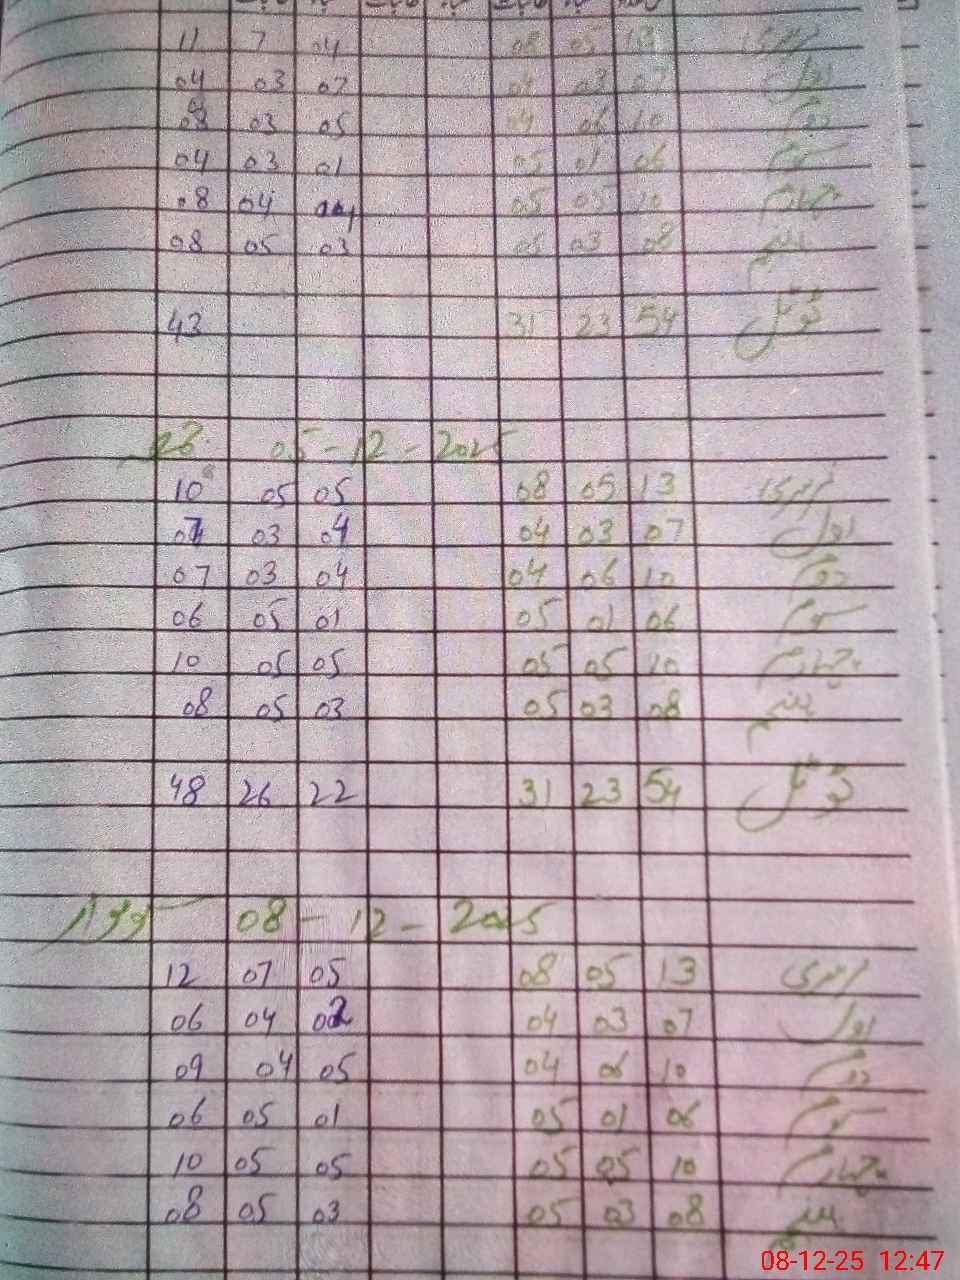 11 7 04 08 05 13
04 03 07 04 03 07 اول
08 03 05 04 06 10 دوم
04 03 01 05 01 06 سوم
08 04 05 05 10 چہارم
08 05 03 05 03 08 پنجم
43 31 23 54 ٹوٹل
جمعہ 05-12-2025
10 05 05 08 05 13
07 03 04 04 03 07 اول
07 03 04 04 06 10 دوم
06 05 01 05 01 06 سوم
10 05 05 05 05 10 چہارم
08 05 03 05 03 08 پنجم
48 26 22 31 23 54 ٹوٹل
سوموار 08-12-2025
12 07 05 08 05 13
06 04 02 04 03 07 اول
09 04 05 04 06 10 دوم
06 05 01 05 01 06 سوم
10 05 05 05 05 10 چہارم
08 05 03 05 03 08 پنجم
08-12-25 12:47